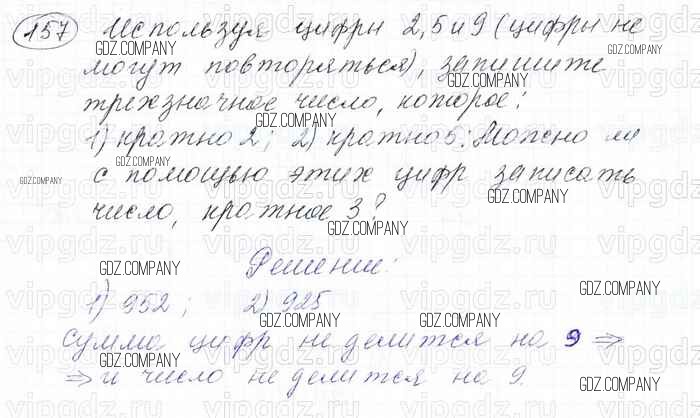 157 Используя цифры 2, 5 и 9 (цифры не
могут повторяться), запишите
трехзначное число, которое:
1) кратно 2; 2) кратно 5. Можно ли
с помощью этих цифр записать
число, кратное 3?
Решение:
1) 952; 2) 925
Сумма цифр не делится на 9 ⇒
⇒ и число не делится на 9.
GDZ.COMPANY
GDZ.COMPANY
GDZ.COMPANY
GDZ.COMPANY
GDZ.COMPANY
GDZ.COMPANY
GDZ.COMPANY
GDZ.COMPANY
GDZ.COMPANY
GDZ.COMPANY
GDZ.COMPANY
GDZ.COMPANY
GDZ.COMPANY
GDZ.COMPANY